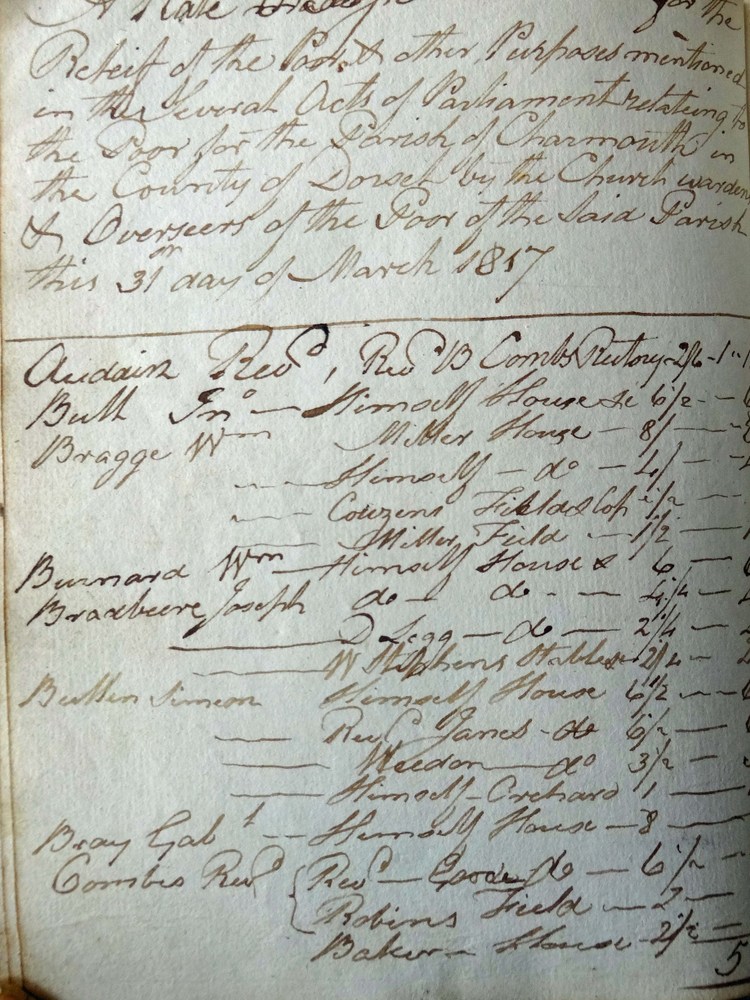 A Rate for the
Releif of the Poor & other Purposes mentioned
in the Several Acts of Parliament relateing to
the Poor for the Parish of Charmouth in
the County of Dorset by the Church wardens
& Overseers of the Poor of the Said Parish
this 31st day of March 1817
Audain Revd, Revd B Combs Rectory - 2/6 - 1 " 1
Bull Jno — Himself House &c 6 1/2 —
Bragge Wm Miller House — 8/ —
— Himself — do — 4/ —
— Couzens Field & 1/2 —
Miller Field — 1/2 —
Burnard Wm — Himself House & 6 —
Bradbeere Joseph do — do — 4 1/4 —
— D Legg — do — 2 1/4 —
— W Stephens Stables 2 1/4 —
Bullen Simeon Himself House 6 1/2 —
— Revd James — do 6 1/2 —
— Weedon — do 3/2 —
— Himself — Orchard 1 —
Bray Gabl — Himself House — 8 —
Combes Revd { Revd — do — 6 1/2 —
Robins Field — 2 —
Baker — House — 2 1/2 —
5